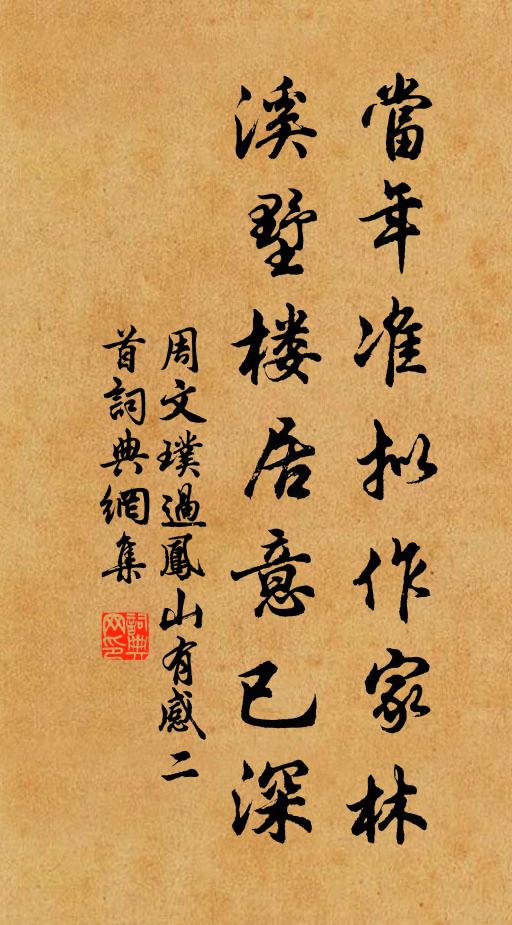 當年准拟作家林
溪墅楼居意已深
周文璞過鳳山有感二
首詞典網集
詞典
网印